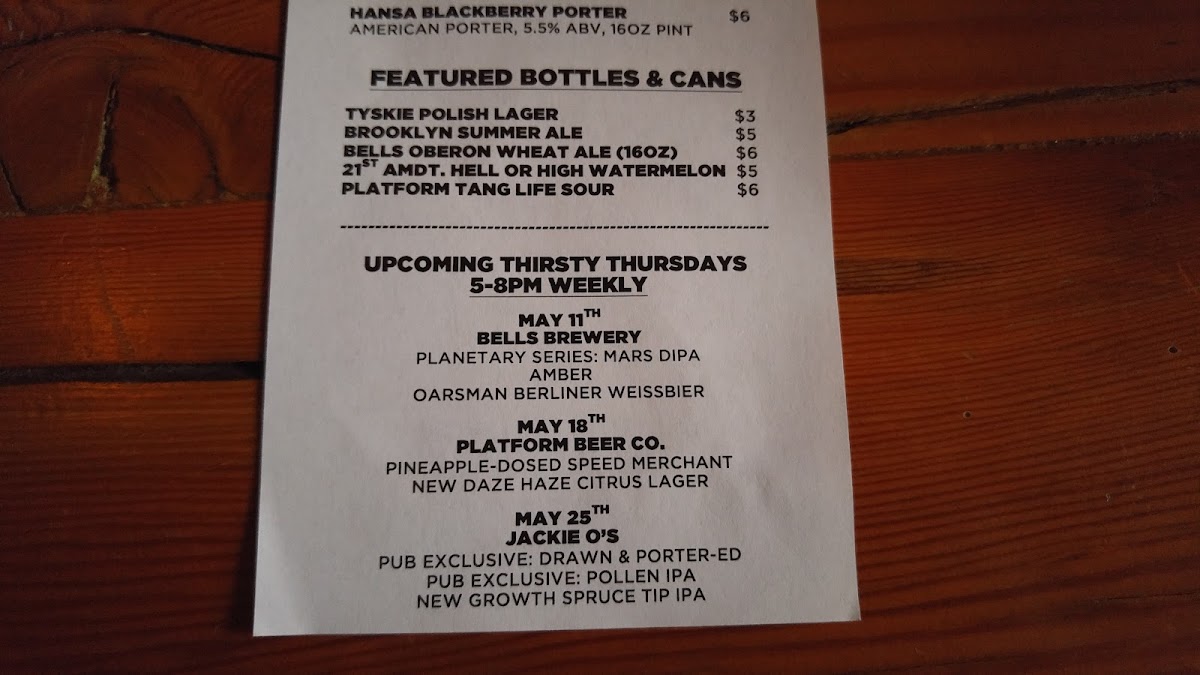 HANSA BLACKBERRY PORTER $6
AMERICAN PORTER, 5.5% ABV, 16OZ PINT
FEATURED BOTTLES & CANS
TYSKIE POLISH LAGER $3
BROOKLYN SUMMER ALE $5
BELLS OBERON WHEAT ALE (16OZ) $6
21ST AMDT. HELL OR HIGH WATERMELON $5
PLATFORM TANG LIFE SOUR $6
UPCOMING THIRSTY THURSDAYS
5-8PM WEEKLY
MAY 11TH
BELLS BREWERY
PLANETARY SERIES: MARS DIPA
AMBER
OARSMAN BERLINER WEISSBIER
MAY 18TH
PLATFORM BEER CO.
PINEAPPLE-DOSED SPEED MERCHANT
NEW DAZE HAZE CITRUS LAGER
MAY 25TH
JACKIE O'S
PUB EXCLUSIVE: DRAWN & PORTER-ED
PUB EXCLUSIVE: POLLEN IPA
NEW GROWTH SPRUCE TIP IPA